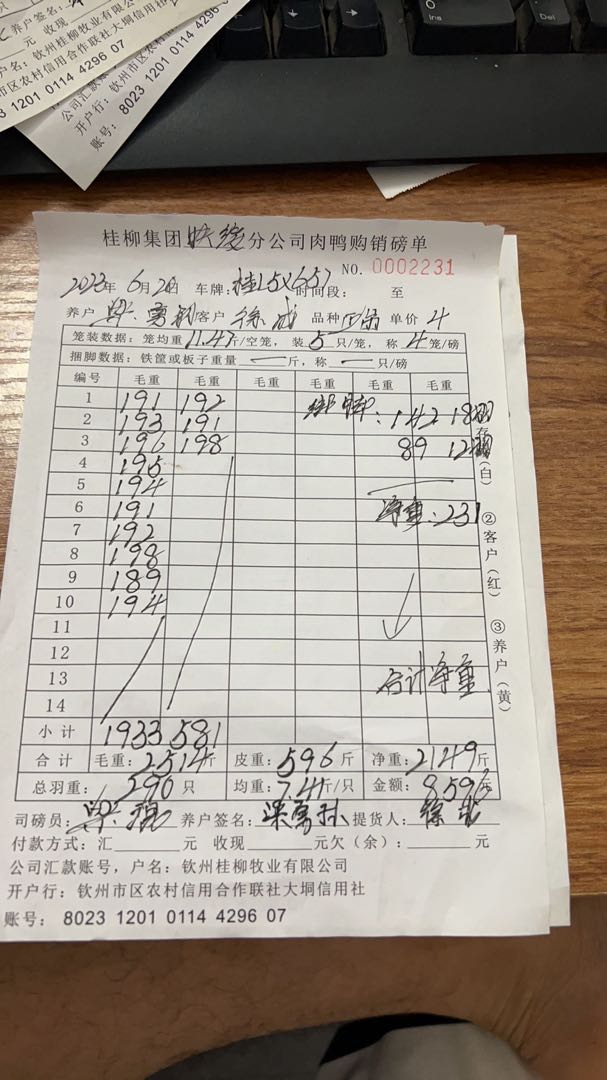 养户签名:
元 收现
户名：钦州桂柳牧业有限公司
钦州市区农村信用合作联社大垌信用社
3 1201 0114 4296 07
公司汇款
开户行：钦州市区农村信用
账号： 8023 1201 0114 4296
桂柳集团 分公司肉鸭购销磅单
NO. 0002231
2023年 6月20日 车牌: 时间段: 至
养户 客户 徐成 品种 单价 4
笼装数据：笼均重11.4斤/空笼，装5只/笼，称4笼/磅
捆脚数据：铁筐或板子重量 一 斤，称 一 只/磅
编号 毛重 毛重 毛重 毛重 毛重 毛重
1 191 192 绑脚: 142 18
2 193 191 89 12
3 196 198
4 195
5 194
6 191 净重:231
7 192
8 198
9 189
10 194
11
12
13 合计净重
14
小计 1933 581
合计 毛重: 2514斤 皮重: 596斤 净重: 2149斤
总羽重: 290只 均重: 7.4斤/只 金额: 8596元
存
（白）
②客户（红）
③养户（黄）
司磅员: 养户签名: 提货人: 徐成
付款方式：汇 元 收现 元欠（余）: 元
公司汇款账号，户名：钦州桂柳牧业有限公司
开户行：钦州市区农村信用合作联社大垌信用社
账号： 8023 1201 0114 4296 07
0
Ins
Del